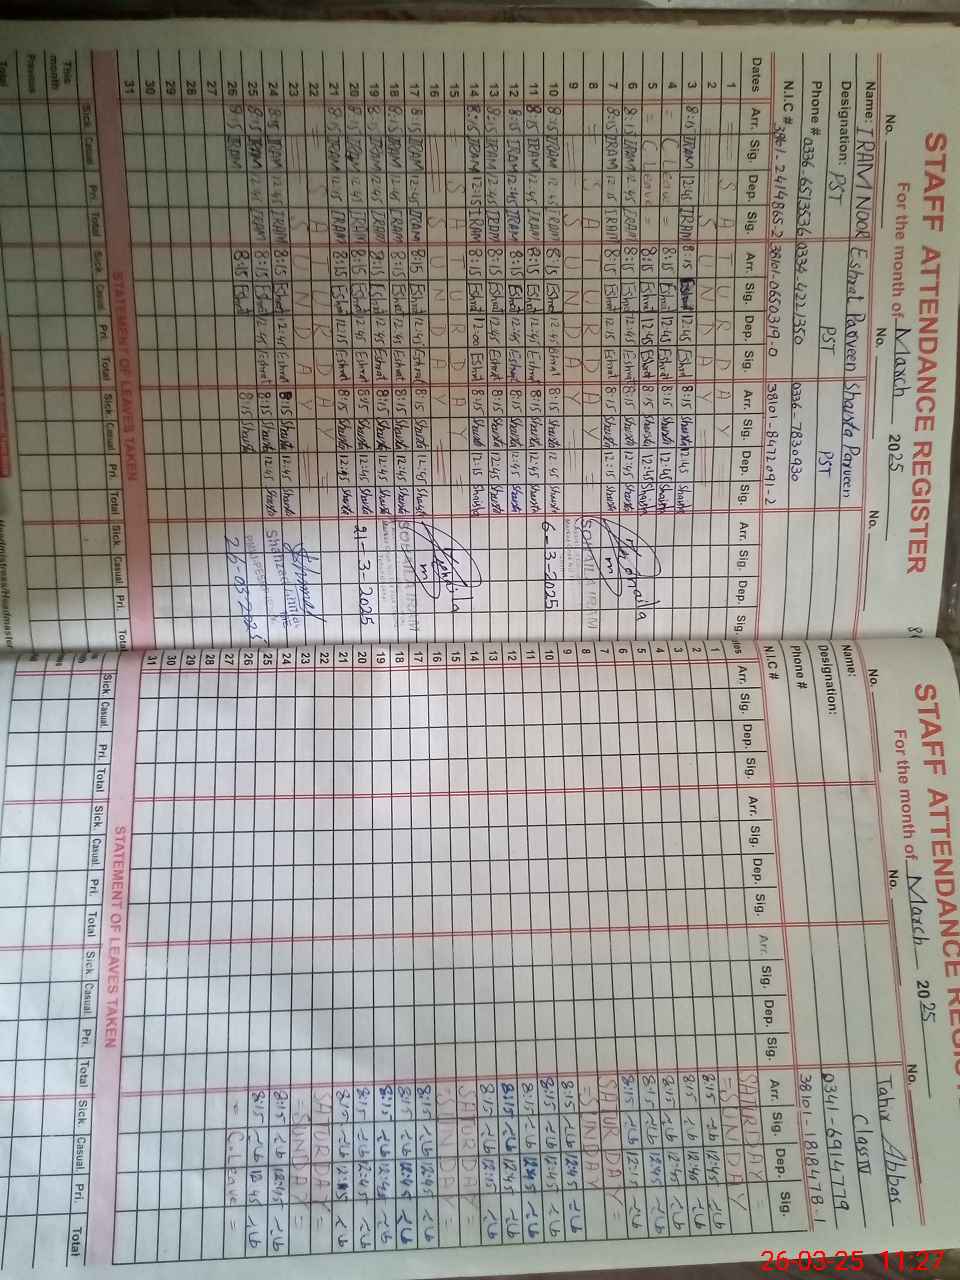 STAFF ATTENDANCE REGISTER
For the month of March 2025
No. No. No.
Name: IRAM NOOR Eshrat Parveen Shaista Parveen
Designation: PST PST PST
Phone # 0336-6513536 0334-4221350 0336-7830930
N.I.C # 38101-0650319-0 38101-8472091-2
Dates Arr. Sig. Dep. Sig. Arr. Sig. Dep. Sig. Arr. Sig. Dep. Sig. Arr. Sig. Dep. Sig.
1 SATURDAY
2 SUNDAY
3 8:15 IRAM 12:45 IRAM 8:15 Eshrat 12:45 Eshrat 8:15 Shaista 12:45 Shaista
4 = C Leave = 8:15 Eshrat 12:45 Eshrat 8:15 Shaista 12:45 Shaista
5 = C Leave = 8:15 Eshrat 12:45 Eshrat 8:15 Shaista 12:45 Shaista
6 8:15 IRAM 12:45 IRAM 8:15 Eshrat 12:45 Eshrat 8:15 Shaista 12:45 Shaista
7 8:15 IRAM 12:15 IRAM 8:15 Eshrat 12:15 Eshrat 8:15 Shaista 12:15 Shaista
8 SATURDAY
9 SUNDAY
10 8:15 IRAM 12:45 IRAM 8:15 Eshrat 12:45 8:15 Shaista 12:45 Shaista 6-3-2025
11 8:15 IRAM 12:45 IRAM 8:15 Eshrat 12:45 Eshrat 8:15 Shaista 12:45 Shaista
12 8:15 IRAM 12:45 IRAM 8:15 Eshrat 12:45 Eshrat 8:15 Shaista 12:45 Shaista
13 8:15 IRAM 12:45 IRAM 8:15 Eshrat 12:45 Eshrat 8:15 Shaista 12:45 Shaista
14 8:15 IRAM 12:15 IRAM 8:15 Eshrat 12:00 Eshrat 8:15 Shaista 12:15 Shaista
15 SATURDAY
16 SUNDAY
17 8:15 IRAM 12:45 IRAM 8:15 Eshrat 12:45 Eshrat 8:15 Shaista 12:45 Shaista
18 8:15 IRAM 12:45 IRAM 8:15 Eshrat 12:45 Eshrat 8:15 Shaista 12:45 Shaista
19 8:15 IRAM 12:45 IRAM 8:15 Eshrat 12:45 Eshrat 8:15 Shaista 12:45 Shaista
20 8:15 IRAM 12:45 IRAM 8:15 Eshrat 12:45 Eshrat 8:15 Shaista 12:45 Shaista 21-3-2025
21 8:15 IRAM 12:15 IRAM 8:15 Eshrat 12:15 Eshrat 8:15 Shaista 12:15 Shaista
22 SATURDAY
23 SUNDAY
24 8:15 IRAM 12:45 IRAM 8:15 Eshrat 12:45 Eshrat 8:15 Shaista 12:45 Shaista
25 8:15 IRAM 12:45 IRAM 8:15 Eshrat 12:45 Eshrat 8:15 Shaista 12:45 Shaista
26 8:15 IRAM 8:15 Eshrat 8:15 Shaista 26-03-2025
27
28
29
30
31
STATEMENT OF LEAVES TAKEN
Sick. Casual Pri. Total Sick. Casual Pri. Total Sick. Casual Pri. Total Sick. Casual Pri. Total
This month
Previous
Total
Headmistress/Headmaster
STAFF ATTENDANCE
For the month of March 2025
No. No. No.
Name: Tahir Abbas
Designation: Class IV
Phone # 0341-6914779
N.I.C # 38101-1818478-1
Arr. Sig. Dep. Sig. Arr. Sig. Dep. Sig. Arr. Sig. Dep. Sig. Arr. Sig. Dep. Sig.
1 SATURDAY =
2 = SUNDAY
3 8:15 12:45
4 8:15 12:45
5 8:15 12:45
6 8:15 12:45
7 8:15 12:15
8 SATURDAY =
9 = SUNDAY
10 8:15 12:45
11 8:15 12:45
12 8:15 12:45
13 8:15 12:45
14 8:15 12:15
15 SATURDAY =
16 = SUNDAY =
17 8:15 12:45
18 8:15 12:45
19 8:15 12:45
20 8:15 12:45
21 8:15 12:15
22 SATURDAY =
23 = SUNDAY =
24 8:15 12:45
25 8:15 12:45
26 C.Leave =
27
28
29
30
31
STATEMENT OF LEAVES TAKEN
Sick. Casual. Pri. Total Sick. Casual. Pri. Total Sick. Casual. Pri. Total Sick. Casual. Pri. Total
26-03-25 11:27